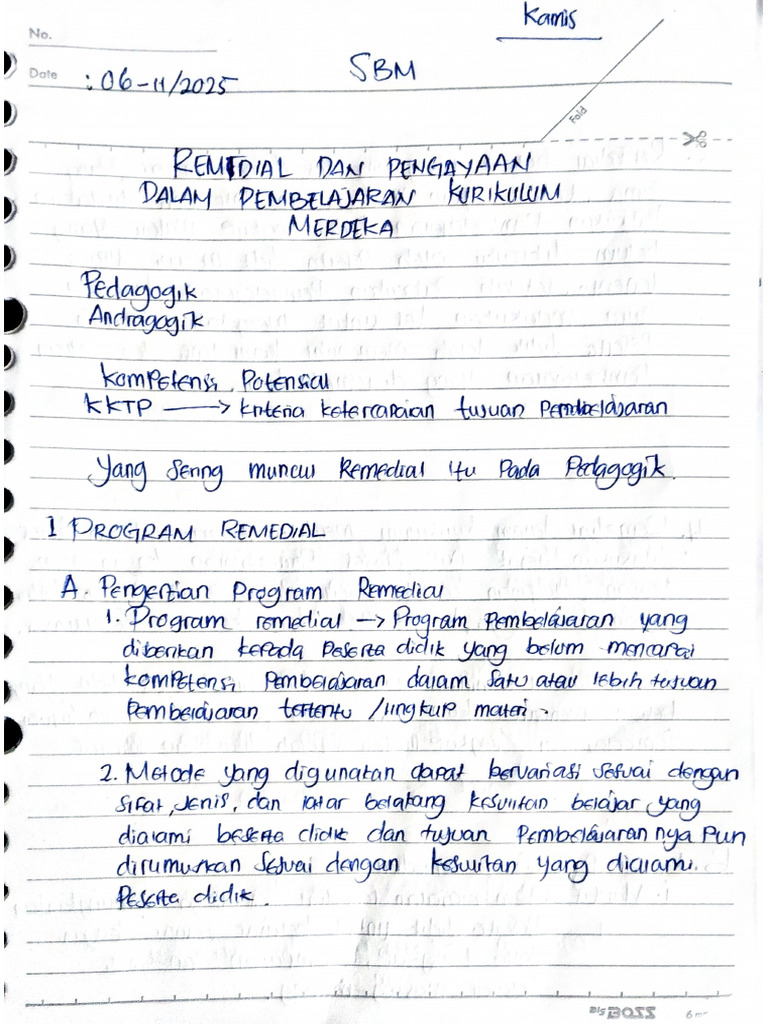 Kamis
No.
Date : 06-11/2025
SBM
Fold
REMEDIAL DAN PENGAYAAN
DALAM PEMBELAJARAN KURIKULUM
MERDEKA
Pedagogik
Andragogik
Kompetensi, Potensial
KKTP → Kriteria ketercapaian tujuan Pembelajaran
Yang sering muncul Remedial itu Pada Pedagogik.
I PROGRAM REMEDIAL
A. Pengertian Program Remedial
1. Program remedial → Program Pembelajaran yang
diberikan kepada Peserta didik yang belum mencapai
kompetensi Pembelajaran dalam satu atau lebih tujuan
Pembelajaran tertentu / lingkup materi.
2. Metode yang digunakan dapat bervariasi sesuai dengan
sifat, Jenis, dan latar belakang kesulitan belajar yang
dialami beserta didik dan tujuan Pembelajaran nya Pun
dirumuskan sesuai dengan kesulitan yang dialami.
Peserta didik.
BIG BOSS 6mm